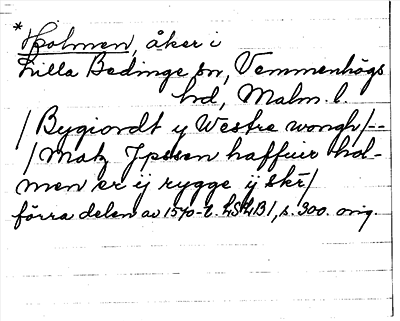 * Holmen, åker i
Lilla Bedinge sn, Vemmenhögs
hd, Malm. l.
/ Bygiordt y Westre wongh/--
/ Matz Jpssen haffuir hol-
men er ij rygge ij skr/
förra delen av 1570-t. LSLB1, s. 300. orig.